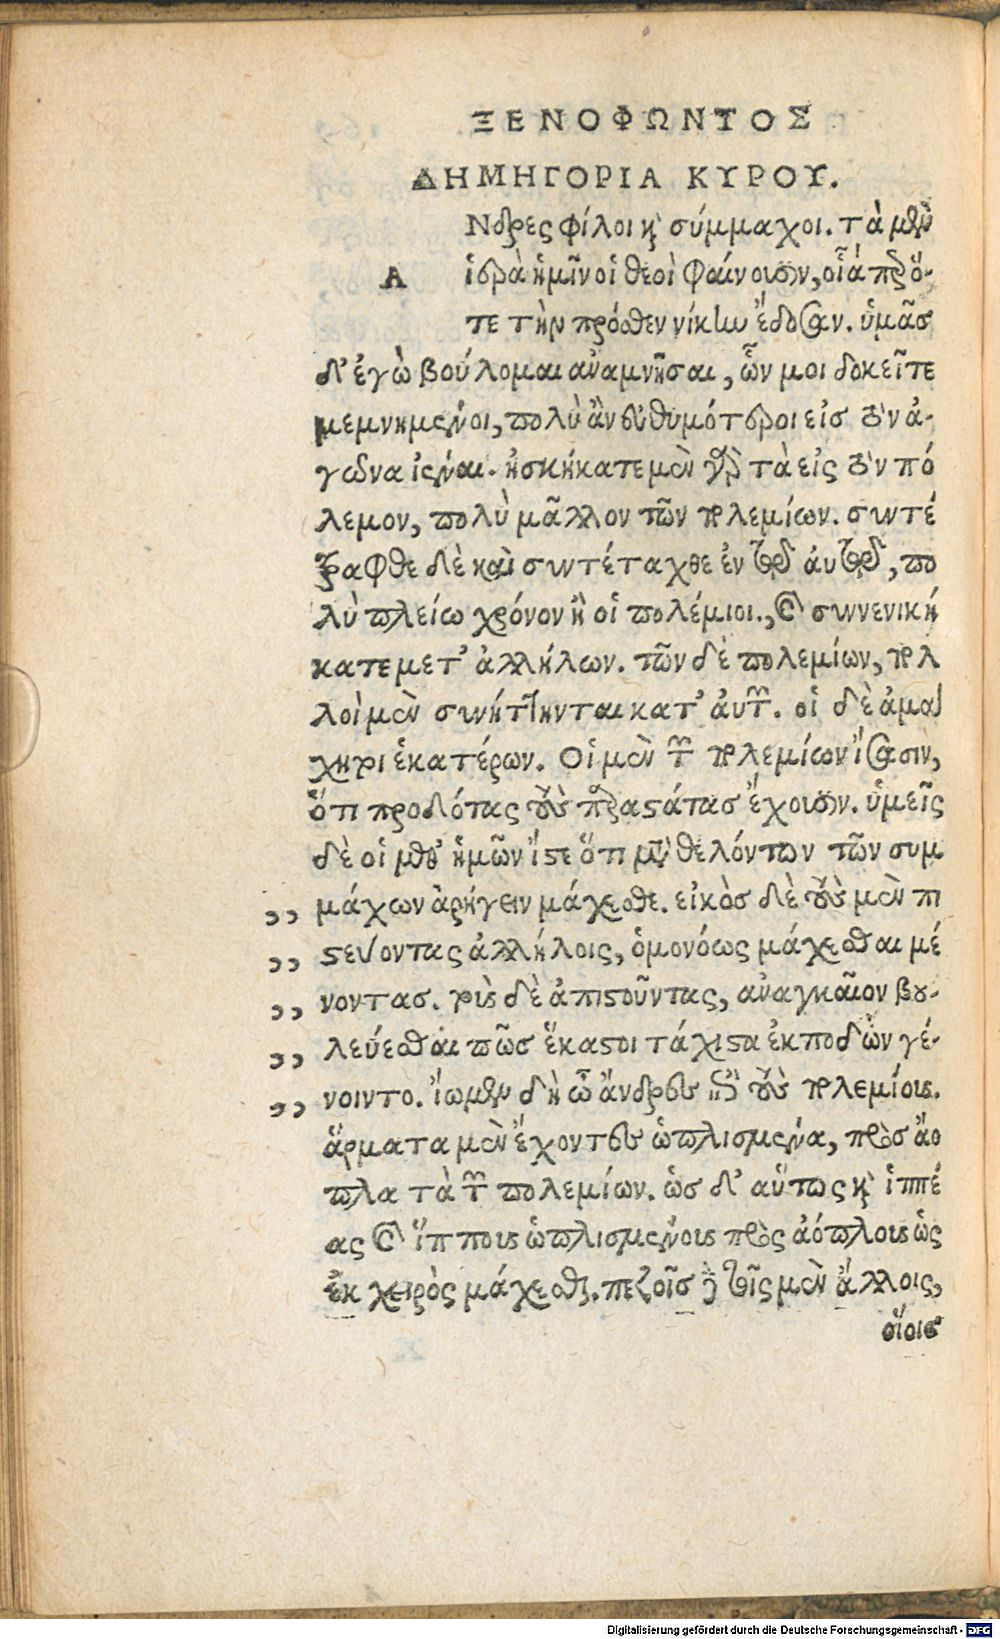 ΞΕΝΟΦΩΝΤΟΣ
ΔΗΜΗΓΟΡΙΑ ΚΥΡΟΥ.
Νδρες φίλοι καὶ σύμμαχοι. τὰ μὲν
Α ἱερὰ ἡμῖν οἱ θεοὶ φαίνουσιν, οἷά περ ὅ-
τε τὴν πρόσθεν νίκην ἔδοσαν. ὑμᾶσ
δ' ἐγὼ βούλομαι ἀναμνῆσαι, ὧν μοι δοκεῖτε
μεμνημένοι, πολὺ ἂν εὐθυμότεροι εἰσ τὸν ἀ-
γῶνα ἰέναι. ἠσκήκατε μὲν γὰρ τὰ εἰς τὸν πό
λεμον, πολὺ μᾶλλον τῶν πολεμίων. συντέ
τραφθε δὲ καὶ συντέταχθε ἐν τῷ ἀυτῷ, πο
λὺ πλείω χρόνον ἢ οἱ πολέμιοι., καὶ συννενική
κατε μετ' ἀλλήλων. τῶν δὲ πολεμίων, πολ
λοὶ μὲν συνήττηνται κατ' ἀυτῶν. οἱ δὲ ἀμα
χηρι ἑκατέρων. Οἱ μὲν τῶν πολεμίων ἴσασιν,
ὅτι προδότας τοὺς παραστάτασ ἔχουσιν. ὑμεῖς
δὲ οἱ μεθ' ἡμῶν ἴστε ὅτι μετὰ θελόντων τῶν συμ
,, μάχων ἀρήγειν μάχεσθε. εἰκὸσ δὲ τοὺς μὲν πι
,, στεύοντας ἀλλήλοις, ὁμονόως μάχεσθαι μέ
,, νοντασ. τοὺς δὲ ἀπιστοῦντας, ἀναγκαῖον βου-
,, λεύεσθαι πῶσ ἕκαστοι τάχιστα ἐκποδὼν γέ-
,, νοιντο. ἴωμεν δὴ ὦ ἄνδρες ἐπὶ τοὺς πολεμίους.
ἅρματα μὲν ἔχοντες ὡπλισμένα, πρὸσ ἄο
πλα τὰ τῶν πολεμίων. ὡσ δ' αὕτως καὶ ἱππέ
ας καὶ ἵππους ὡπλισμένους πρὸς ἀόπλους ὡς
ἐκ χειρὸς μάχεσθαι. πεζοῖσ δὲ τοῖς μὲν ἄλλοις,
οἵοισ
Digitalisierung gefördert durch die Deutsche Forschungsgemeinschaft - DFG